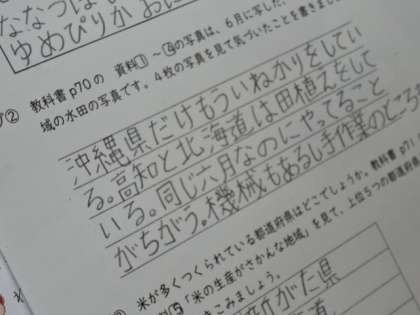 ななつぼし
ゆめぴりか おに
② 教科書p70の 資料①～④の写真は、6月に写した、
域の水田の写真です。4枚の写真を見て気づいたことを書きまし
沖縄県だけもういねかりをしてい
る。高知と北海道は田植えをして
いる。同じ六月なのにやってること
がちがう。機械もあるし手作業のところも
米が多くつくられている都道府県はどこでしょうか。教科書p71
⑤「米の生産がさかんな地域」を見て、上位5つの都道府県
きこみましょう。
新がた県
道